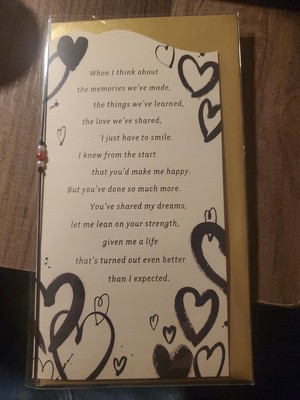 When I think about
the memories we've made,
the things we've learned,
the love we've shared,
I just have to smile.
I knew from the start
that you'd make me happy.
But you've done so much more.
You've shared my dreams,
let me lean on your strength,
given me a life
that's turned out even better
than I expected.